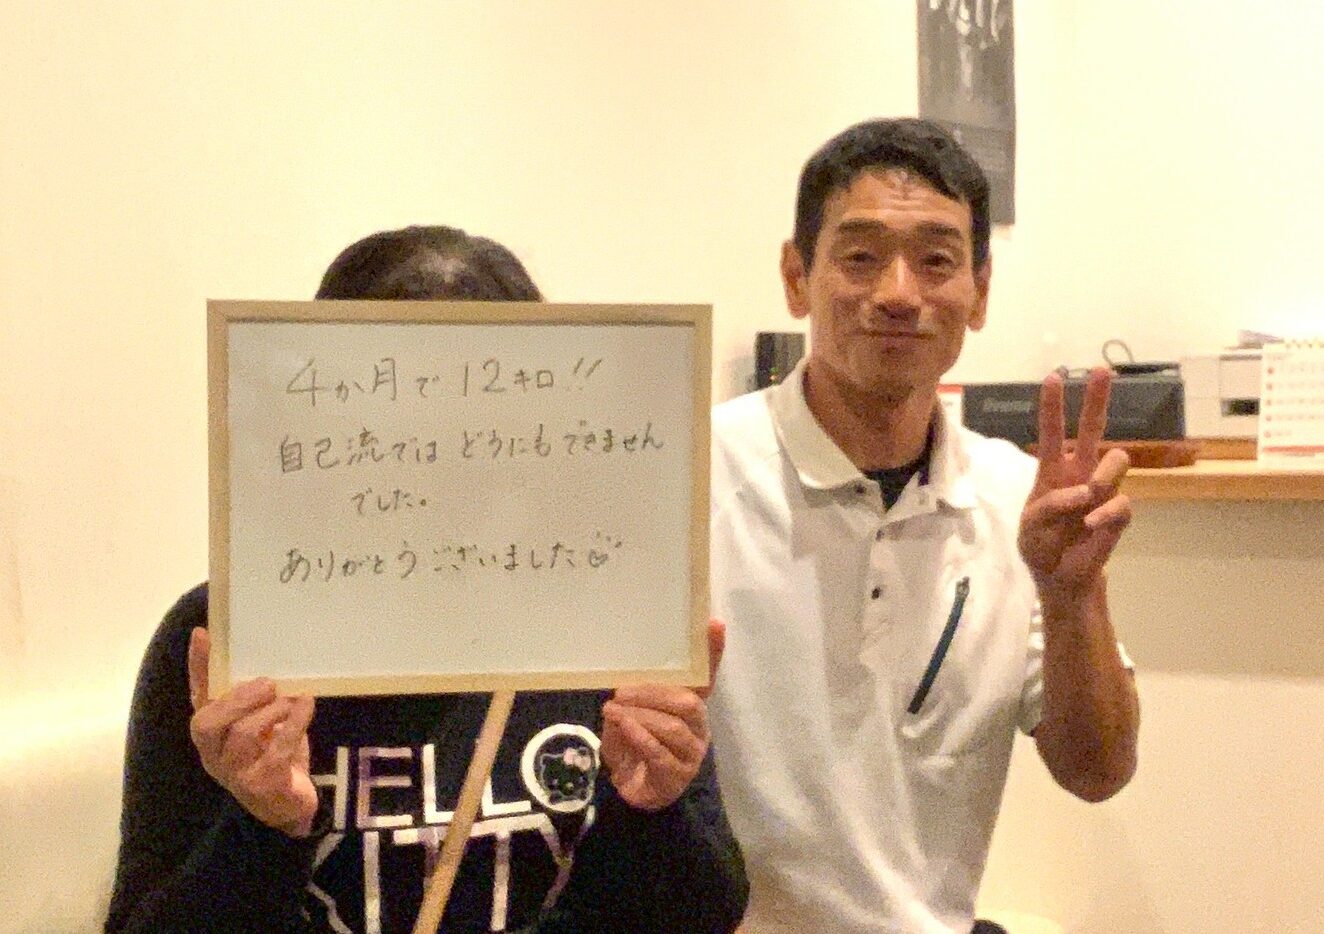 4か月で12キロ!!
自己流ではどうにもできません
でした。
ありがとうございました
HELLO
KITTY